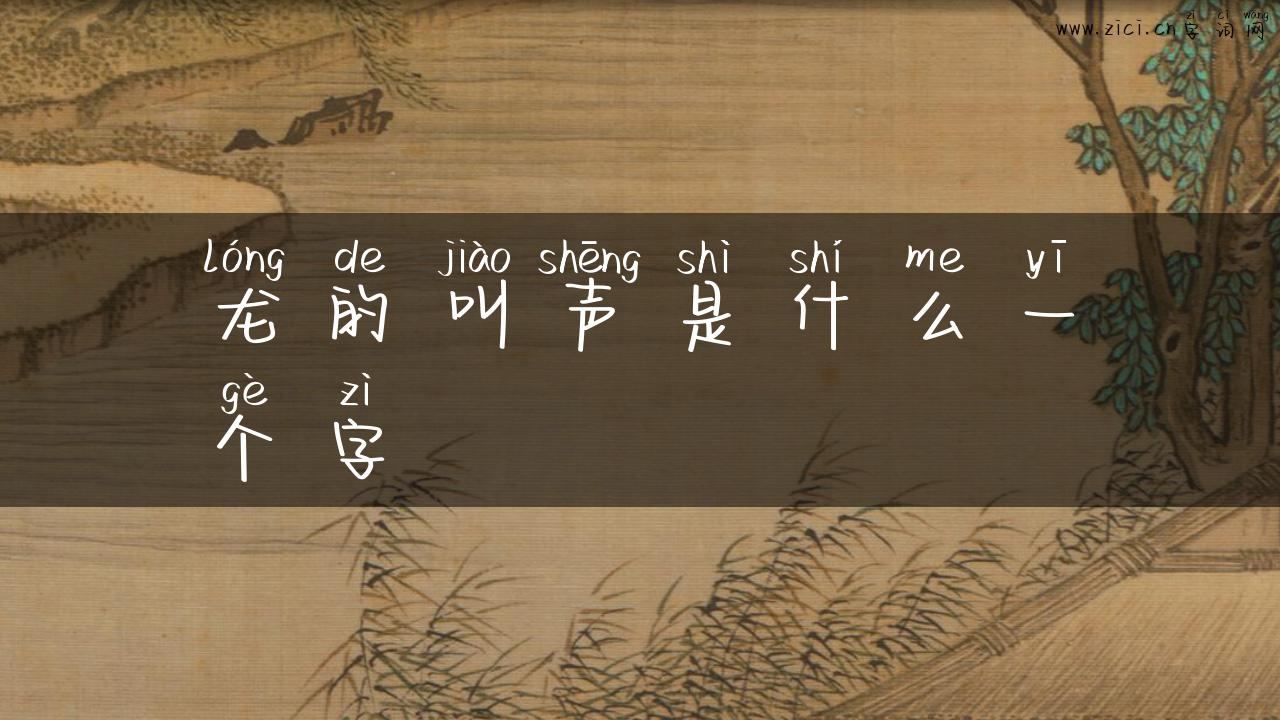 zì cí wǎng
www.zici.cn字词网
lóng de jiào shēng shì shí me yī
龙的叫声是什么一
gè zì
个字